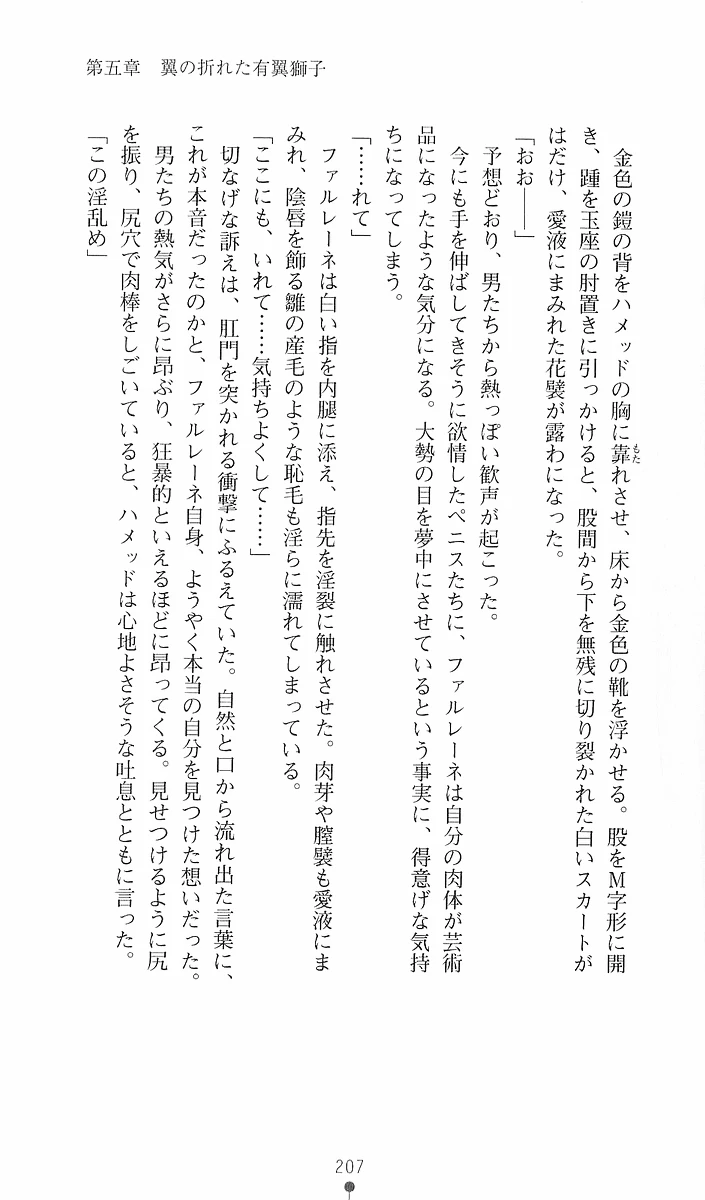 第五章　翼の折れた有翼獅子
金色の鎧の背をハメッドの胸に靠れさせ、床から金色の靴を浮かせる。股をM字形に開
もた
き、踵を玉座の肘置きに引っかけると、股間から下を無残に切り裂かれた白いスカートが
はだけ、愛液にまみれた花襞が露わになった。
「おお――」
予想どおり、男たちから熱っぽい歓声が起こった。
今にも手を伸ばしてきそうに欲情したペニスたちに、ファルレーネは自分の肉体が芸術
品になったような気分になる。大勢の目を夢中にさせているという事実に、得意げな気持
ちになってしまう。
「……れて」
ファルレーネは白い指を内腿に添え、指先を淫裂に触れさせた。肉芽や膣襞も愛液にま
みれ、陰唇を飾る雛の産毛のような恥毛も淫らに濡れてしまっている。
「ここにも、いれて……気持ちよくして……」
切なげな訴えは、肛門を突かれる衝撃にふるえていた。自然と口から流れ出た言葉に、
これが本音だったのかと、ファルレーネ自身、ようやく本当の自分を見つけた想いだった。
男たちの熱気がさらに昂ぶり、狂暴的といえるほどに昂ってくる。見せつけるように尻
を振り、尻穴で肉棒をしごいていると、ハメッドは心地よさそうな吐息とともに言った。
「この淫乱め」
207